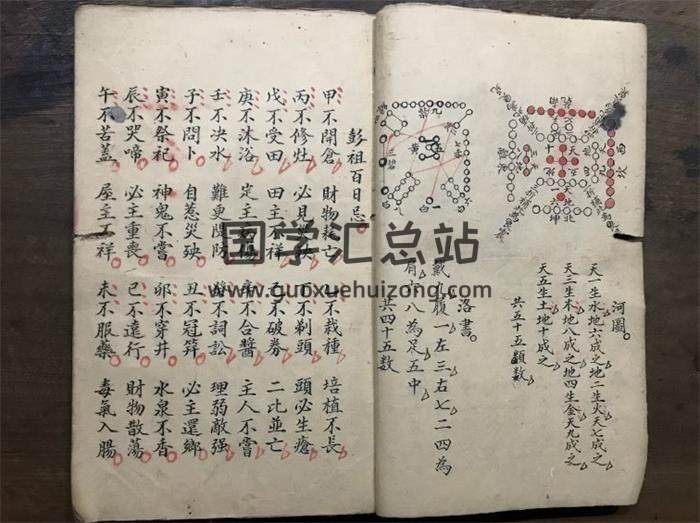 河圖。
天一生水地六成之地二生火天七成之
天三生木地八成之地四生金天九成之
天五生土地十成之
共五十五顆數
洛書。
戴九履一左三右七二四為
肩六八為足五中
共四十五数
彭祖百日忌
甲不開倉 財物耗亡 乙不栽種 培植不長
丙不修灶 必見 丁不剃頭 頭必生瘡
戊不受田 田主不祥 己不破券 二比並亡
庚不沐浴 定主 不合醬 主人不嘗
壬不泱水 難更隄防 癸不詞訟 理弱敵强
子不問卜 自惹災殃 丑不冠笄 必主還鄉
寅不祭祀 神鬼不嘗 卯不穿井 水泉不香
辰不哭啼 必主重喪 巳不遠行 財物散蕩
午不苫蓋 屋主不祥 未不服藥 毒氣入腸
国学汇总站
www.guoxuehuizong.com